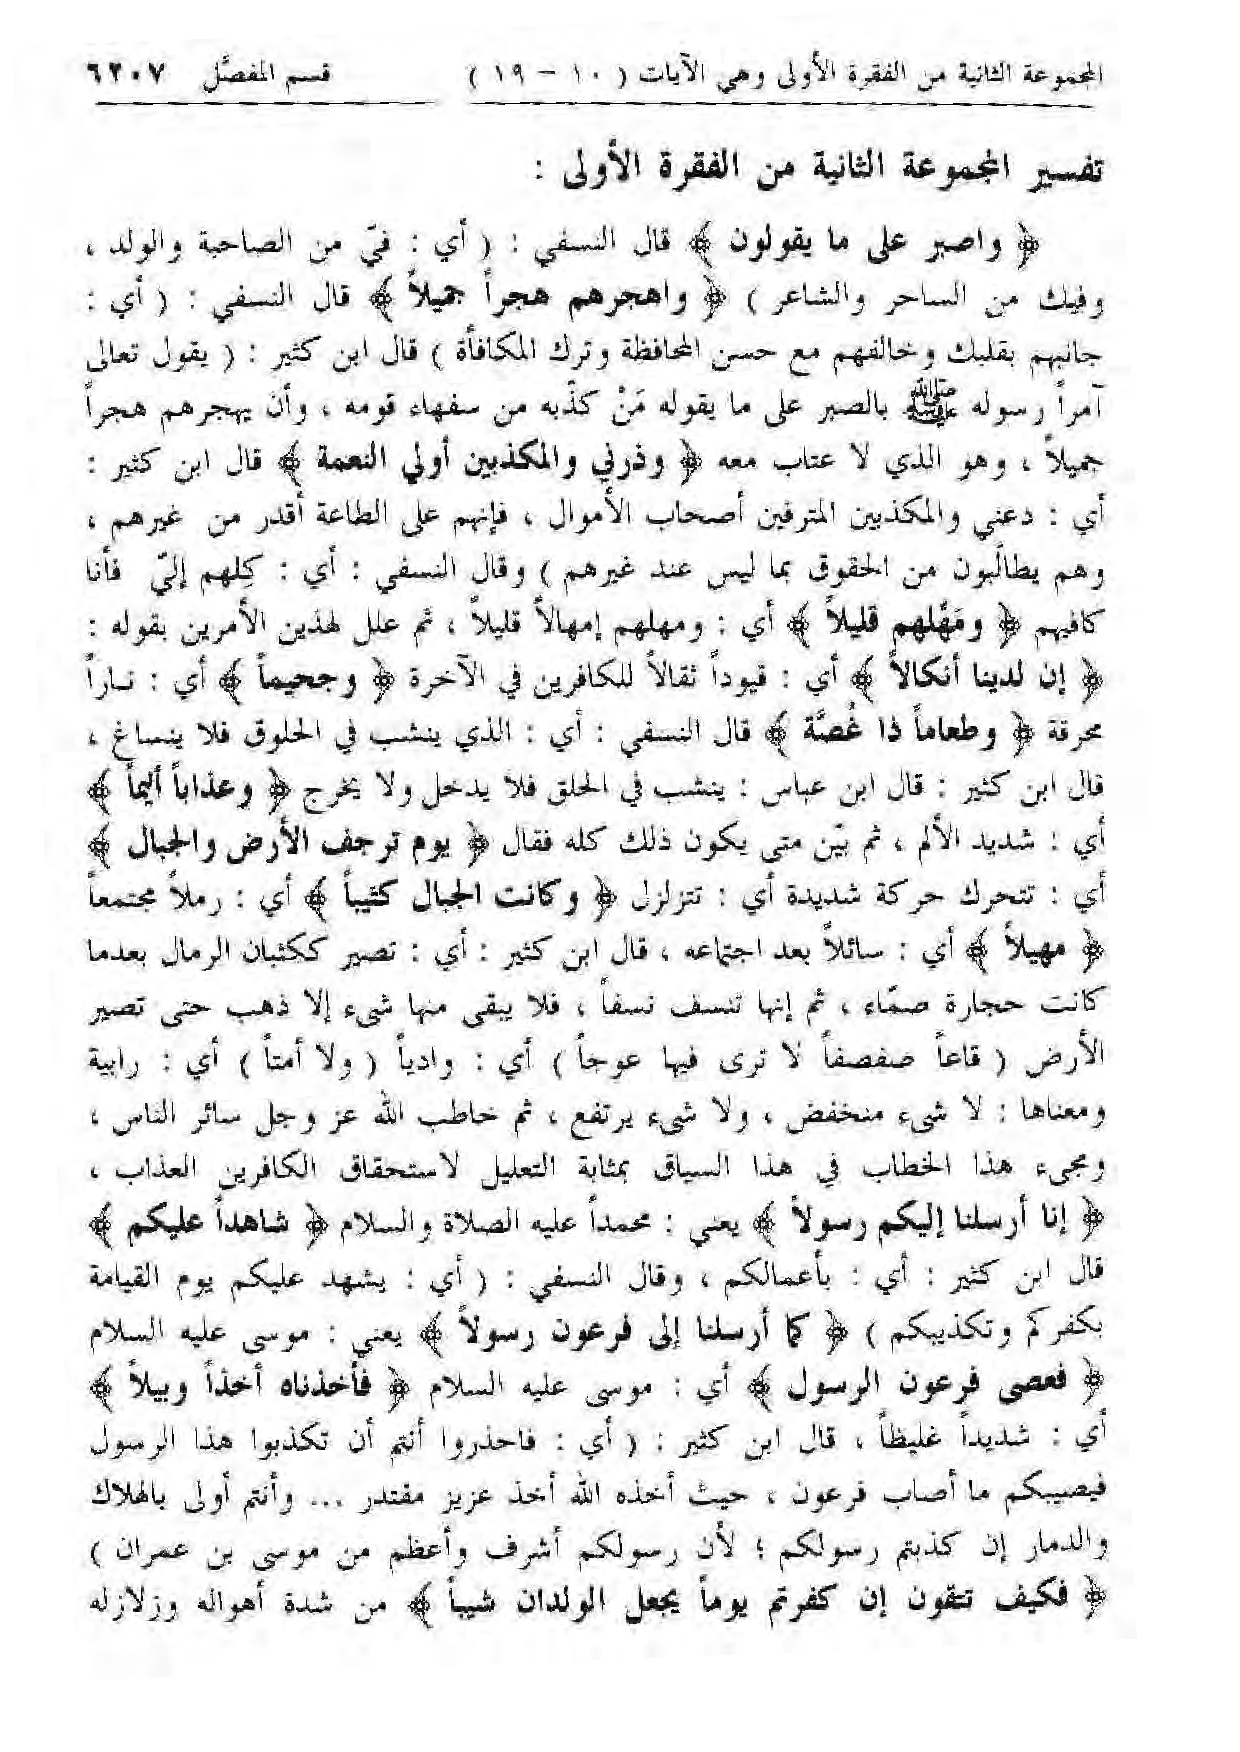 المجموعة الثانية من الفقرة الأولى وهي الآيات ( ١٠ - ١٩ ) قسم المفصَّل ٦٢٠٧
تفسير المجموعة الثانية من الفقرة الأولى :
﴿ واصبر على ما يقولون ﴾ قال النسفي : ( أي : فيّ من الصاحبة والولد ،
وفيك من الساحر والشاعر ) ﴿ واهجرهم هجراً جميلاً ﴾ قال النسفي : ( أي :
جانبهم بقلبك وخالفهم مع حسن المحافظة وترك المكافأة ) قال ابن كثير : ( يقول تعالى
آمراً رسوله ﷺ بالصبر على ما يقوله مَنْ كذّبه من سفهاء قومه ، وأن يهجرهم هجراً
جميلاً ، وهو الذي لا عتاب معه ﴿ وذرني والمكذبين أولي النعمة ﴾ قال ابن كثير :
أي : دعني والمكذبين المترفين أصحاب الأموال ، فإنهم على الطاعة أقدر من غيرهم ،
وهم يطالَبون من الحقوق بما ليس عند غيرهم ) وقال النسفي : أي : كِلهم إليّ فأنا
كافيهم ﴿ ومَهِّلهم قليلاً ﴾ أي : ومهلهم إمهالاً قليلاً ، ثم علل لهذين الأمرين بقوله :
﴿ إن لدينا أنكالاً ﴾ أي : قيوداً ثقالاً للكافرين في الآخرة ﴿ وجحيماً ﴾ أي : ناراً
محرقة ﴿ وطعاماً ذا غُصَّة ﴾ قال النسفي : أي : الذي ينشب في الحلوق فلا ينساغ ،
قال ابن كثير : قال ابن عباس : ينشب في الحلق فلا يدخل ولا يخرج ﴿ وعذاباً أليماً ﴾
أي : شديد الألم ، ثم بيّن متى يكون ذلك كله فقال ﴿ يوم ترجف الأرض والجبال ﴾
أي : تتحرك حركة شديدة أي : تتزلزل ﴿ وكانت الجبال كثيباً ﴾ أي : رملاً مجتمعاً
﴿ مهيلاً ﴾ أي : سائلاً بعد اجتماعه ، قال ابن كثير : أي : تصير ككثبان الرمال بعدما
كانت حجارة صمّاء ، ثم إنها تنسف نسفاً ، فلا يبقى منها شيء إلا ذهب حتى تصير
الأرض ( قاعاً صفصفاً لا ترى فيها عوجاً ) أي : وادياً ( ولا أمتاً ) أي : رابية
ومعناها : لا شيء منخفض ، ولا شيء يرتفع ، ثم خاطب الله عز وجل سائر الناس ،
ومجيء هذا الخطاب في هذا السياق بمثابة التعليل لاستحقاق الكافرين العذاب ،
﴿ إنا أرسلنا إليكم رسولاً ﴾ يعني : محمداً عليه الصلاة والسلام ﴿ شاهداً عليكم ﴾
قال ابن كثير : أي : بأعمالكم ، وقال النسفي : ( أي : يشهد عليكم يوم القيامة
بكفركم وتكذيبكم ) ﴿ كما أرسلنا إلى فرعون رسولاً ﴾ يعني : موسى عليه السلام
﴿ فعصى فرعون الرسول ﴾ أي : موسى عليه السلام ﴿ فأخذناه أخذاً وبيلاً ﴾
أي : شديداً غليظاً ، قال ابن كثير : ( أي : فاحذروا أنتم أن تكذبوا هذا الرسول
فيصيبكم ما أصاب فرعون ، حيث أخذه الله أخذ عزيز مقتدر ... وأنتم أولى بالهلاك
والدمار إن كذبتم رسولكم ؛ لأن رسولكم أشرف وأعظم من موسى بن عمران )
﴿ فكيف تتقون إن كفرتم يوماً يجعل الولدان شيباً ﴾ من شدة أهواله وزلازله